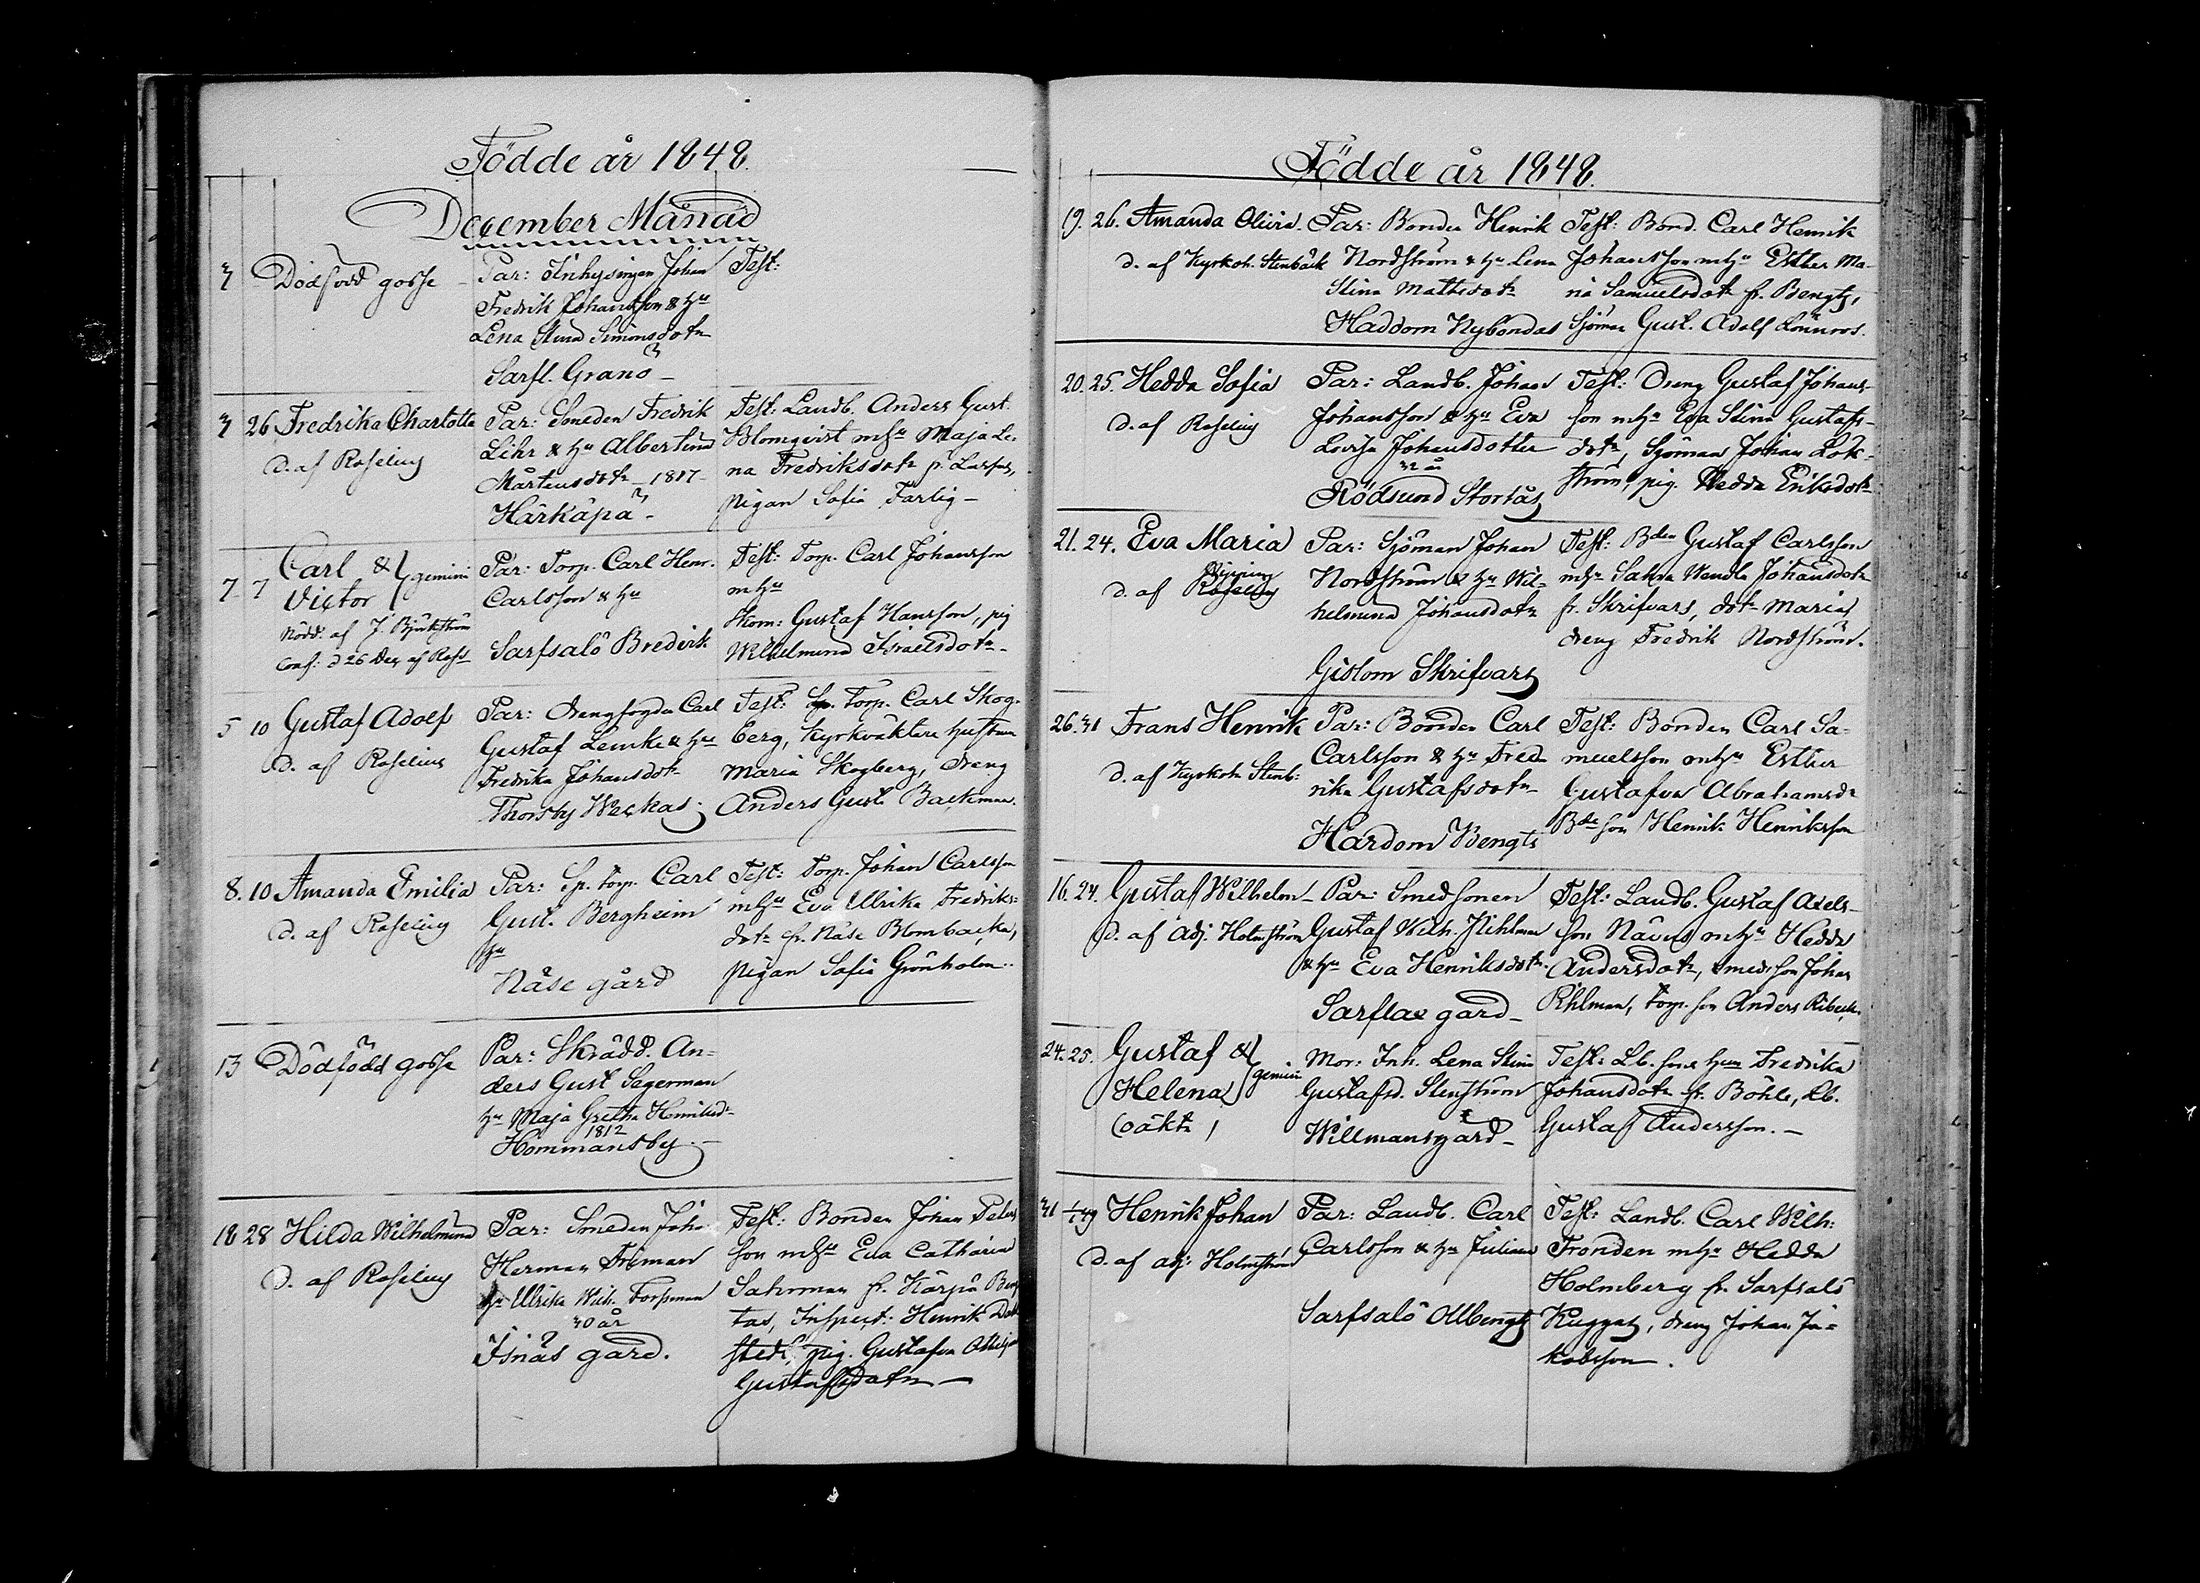 Födde år 1848.
December Månad
3 Dödfödd gosse
Par: Inhysingen Johan
Fredrik Johansson & hu
Lena Stina Simonsdotr
Sarfl. Granö
Test:
3 26 Fredrika Charlotta
d. af Roselius
Par: Smeden Fredrik
Lihr & hu Albertina
Mårtensdotr 1817
Härkäpä
Test: Landb. Anders Gust.
Blomqvist mhu Maja Le-
na Fredriksdotr fr.
pigan Sofia Farlig
7 7 Carl & Victor } gemini
Nödd. af J. Björkström
Conf. d 26 Dec af Rosel
Par: Torp. Carl Henr.
Carlsson & hu
Sarfsalö Bredvik
Test: Torp. Carl Johansson
mhu
Skom: Gustaf Hansson, pig
Wilhelmina Israelsdotr
5 10 Gustaf Adolf
d. af Roselius
Par: Drengfogden Carl
Gustaf Lemke & hu
Fredrika Johansdotr
Thorsby Weckas
Test: Sp. Torp. Carl Skog-
berg, Kyrkväktare hustrun
Maria Skogberg, dreng
Anders Gust. Backman.
8. 10 Amanda Emilia
d. af Roselius
Par: Sp. torp. Carl
Gust. Bergheim
hu
Näse gård
Test: Torp. Johan Carlsson
mhu Eva Ulrika Fredriks-
dotr fr. Näse Blombacka,
pigan Sofia Grönholm
13 Dödfödd gosse
Par: Skrädd. An-
ders Gust Segerman
hu Maja Gretha Henriksdr
1812
Hommansby
18 28 Hilda Wilhelmina
d. af Roselius
Par: Smeden Joha
Herman Friman
hu Ulrika Wilh. Forsman
30 år
Isnäs gård.
Test: Bonden Johan Peters
son mhu Eva Catharina
fr. Kärpä
tas, Inspect: Henrik
stedt, pig. Gustafva
Gustafsdotr
Födde år 1848.
19. 26. Amanda Olivia.
d. af Kyrkoh. Stenbäck
Par: Bonden Henrik
Nordström & hu Lena
Stina Mathsdotr
Haddom Nybondas
Test: Bond. Carl Henrik
Johansson mhu Esther Ma-
ria Samuelsdotr fr. Bengts,
Sjöman Gust. Adolf Lönnros.
20. 25. Hedda Sofia
d. af Roselius
Par: Landb. Johan
Johansson & hu Eva
Lovisa Johansdotter
32 år
Rödsund Stortås
Test: Dreng Gustaf Johans-
son mhu Eva Stina Gustafs-
dotr, Sjöman Johan Lök-
ström, pig. Hedda Eriksdotr
21. 24. Eva Maria
d. af Roselius
Par: Sjöman Johan
Nordström & hu Wil-
helmina Johansdotr
Gislom Skrifvars
Test: Bden Gustaf Carlsson
mhu Wendla Johansdotr
fr. Skrifvars, dotr Maria,
dreng Fredrik Nordström.
26. 31 Frans Henrik
d. af Kyrkoh. Stenb:
Par: Bonden Carl
Carlsson & hu Fred-
rika Gustafsdotr
Hardom Bengts
Test: Bonden Carl Sa-
muelsson mhu Esther
Gustafva Abrahamsdr
Bde son Henrik Henriksson
16. 24. Gustaf Wilhelm
d. af Adj. Holmström
Par: Smedsonen
Gustaf Wilh.
& hu Eva Henriksdotr.
Sarflax gård
Test: Landb. Gustaf Axels-
son mhu Hedda
Andersdotr, smedsson Johan
torp. son Anders
24. 25. Gustaf & Helena } gemini
(oäkta)
Mor: Inh. Lena Stina
Gustafsd. Stenström
Willmansgård
Test: Lb. sons hun Fredrika
Johansdotr fr. Böhle, Lb.
Gustaf Andersson.
31 1/1 49 Henrik Johan
d. af adj. Holmström
Par: Landb. Carl
Carlsson & hu Juliana
Sarfsalö Ollbengts
Test: Landb. Carl Wilh:
Fronden mhu Hedda
Holmberg fr. Sarfsalö
Kuggas, dreng Johan Ja-
kobsson.